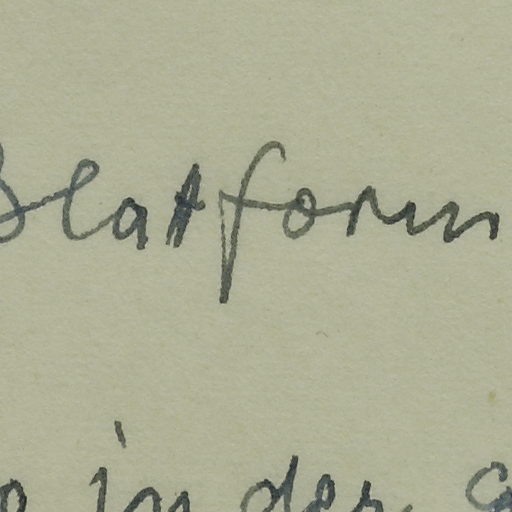 Blatform
in der